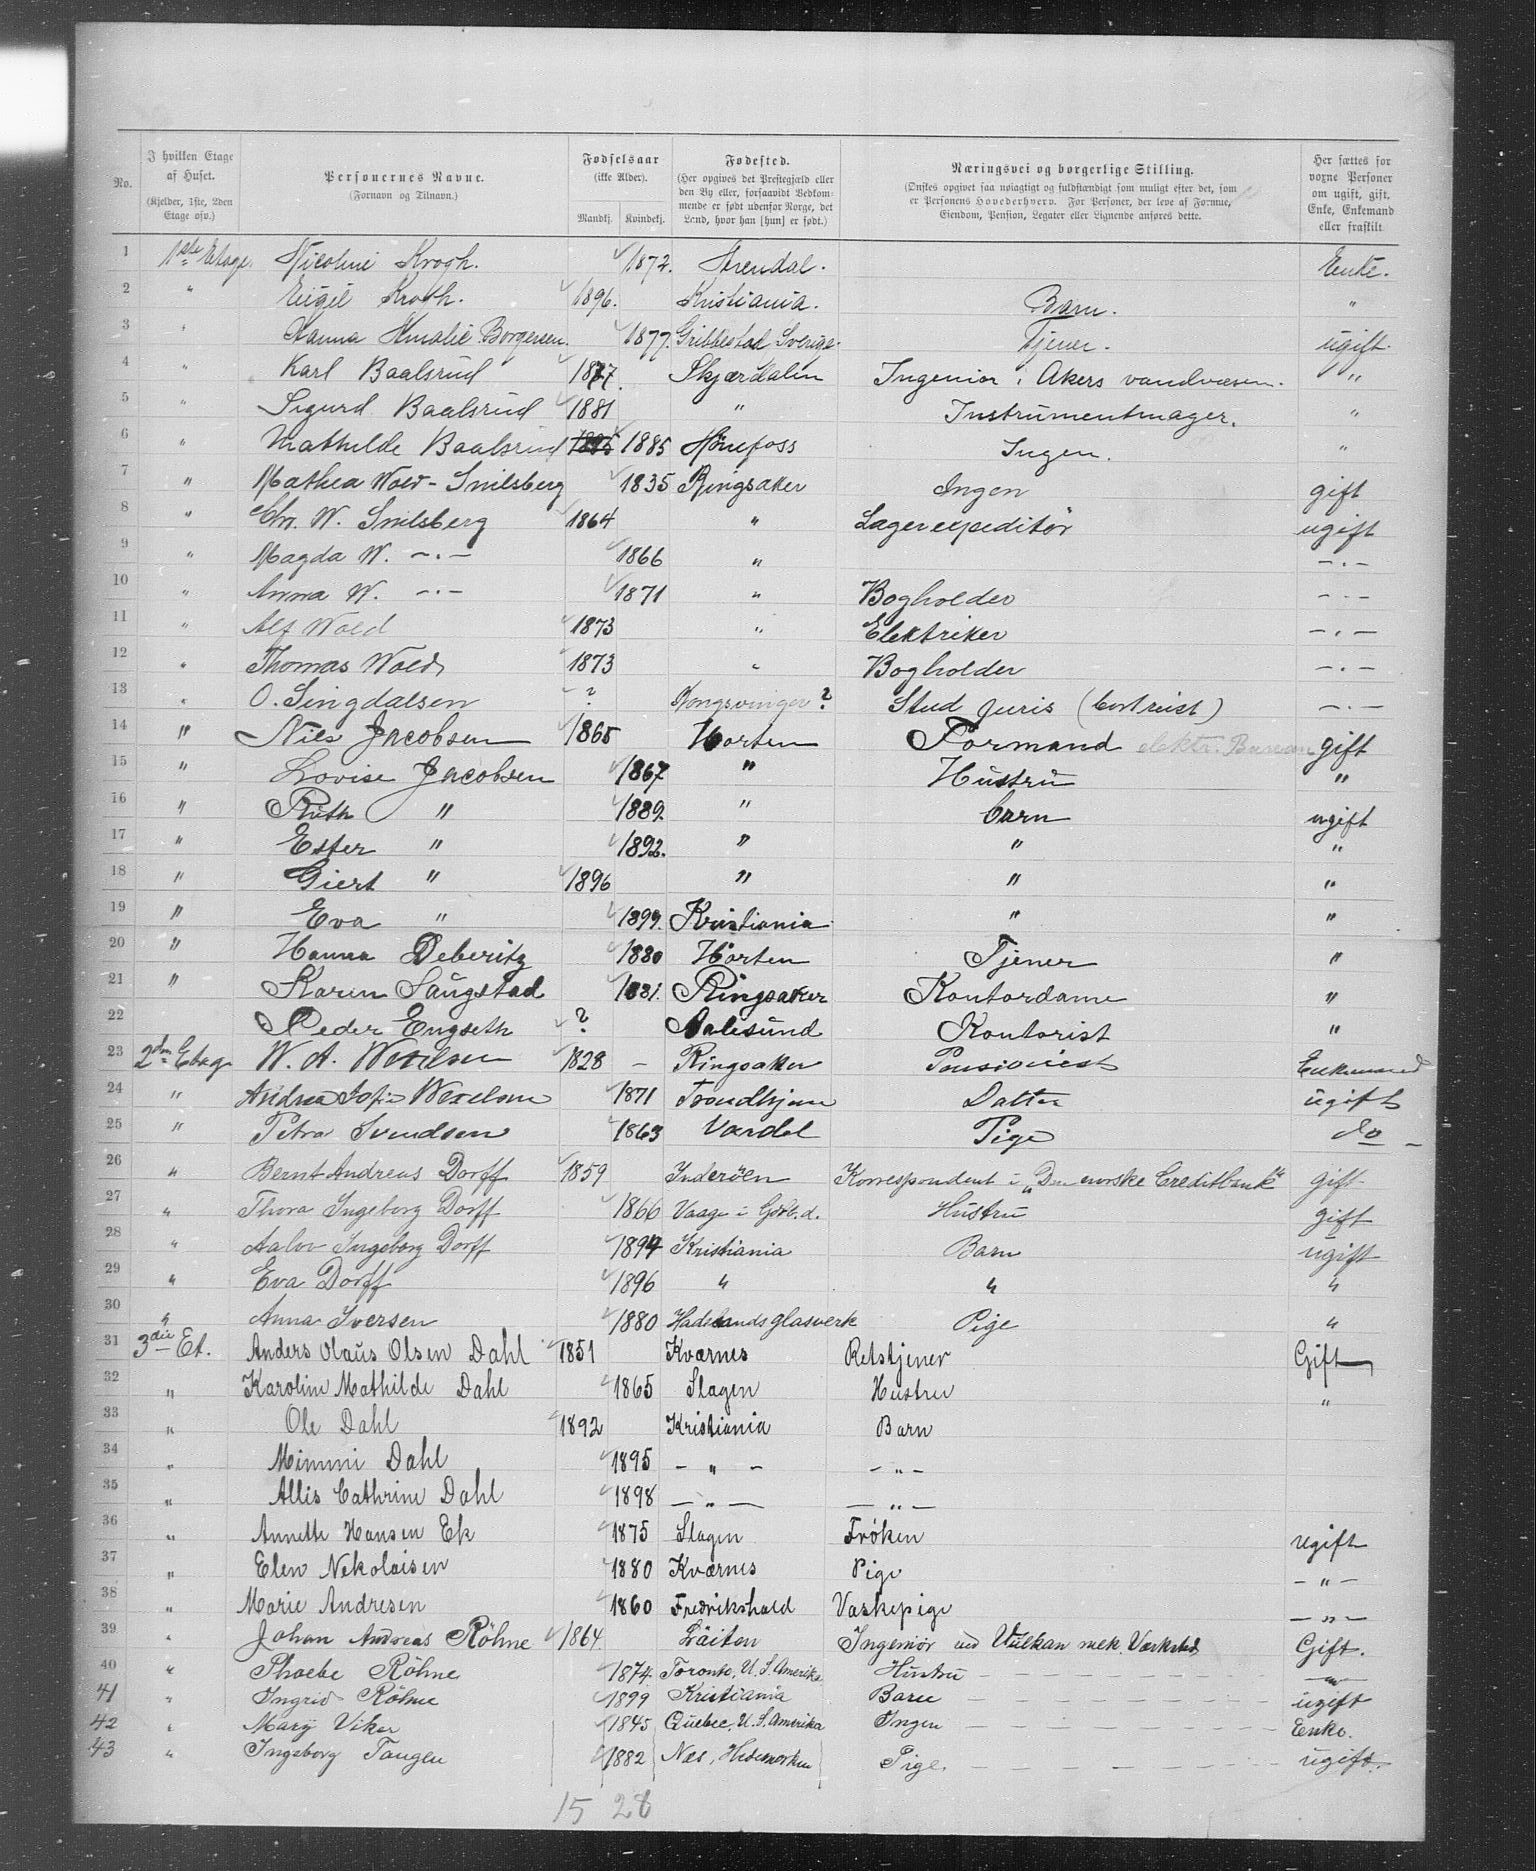 No.
I hvilken Etage af Huset. (Kjelder, 1ste, 2den Etage osv.)
Personernes Navne. (Fornavn og Tilnavn.)
Fødselsaar (ikke Alder). Mandkj. Kvindekj.
Fødested. (Her opgives det Prestegjæld eller den By eller, forsaavidt Vedkommende er født udenfor Norge, det Land, hvor han [hun] er født.)
Næringsvei og borgerlige Stilling. (Ønskes opgivet saa nøiagtigt og fuldstændigt som muligt efter det, som er Personens Hovederhverv. For Personer, der leve af Formue, Eiendom, Pension, Legater eller Lignende anføres dette.
Her sættes for voxne Personer om ugift, gift, Enke, Enkemand eller fraskilt
1 1ste Etage. Nicoline Krogh. 1872. Arendal. Enke.
2 " Eigil Krogh. 1896. Kristiania. Barn. "
3 " Hanna Amalie Borgersen. 1877. Gribbestad Sverige. Tjener. ugift.
4 " Karl Baalsrud 1877. Skjærdalen Ingeniør i Akers vandvæsen. "
5 " Sigurd Baalsrud 1881 " Instrumentmager. "
6 " Mathilde Baalsrud 1885 1885 Hønefoss Ingen. "
7 " Mathea Wold-Snilsberg 1835 Ringsaker Ingen gift
8 " Chr. W. Snilsberg 1864 " Lagerexpeditør ugift
9 " Magda W. -"- 1866 " -"-
10 " Anna W. -"- 1871 " Bogholder -"-
11 " Alf Wold 1873 " Elektriker -"-
12 " Thomas Wold 1873 " Bogholder -"-
13 " O. Singdalsen ? Kongsvinger? Stud juris -"-
14 " Niels Jacobsen 1865 Horten Formand elektr. gift
15 " Lovise Jacobsen 1867 " Hustru "
16 " Ruth " 1889. " barn ugift
17 " Ester " 1892. " " "
18 " Giert " 1896 " " "
19 " Eva " 1899. Kristiania " "
20 " Hanna Deberitz 1880 Horten Tjener "
21 " Karen Saugstad 1881. Ringsaker Kontordame "
22 Peder Engseth ? Aalesund Kontorist "
23 2den Etag W. A. Wexelsen 1828 - Ringsaker Pensionist Enkemand
24 " Andrea Sofie Wexelsen 1871 Trondhjem Datter ugift
25 " Petra Svendsen 1863 Vardal Pige do
26 " Bernt Andreas Dorff 1859 Inderøen Korrespondent i "Den norske Creditbank" gift
27 " Thora Ingeborg Dorff 1866 Vaage i Gdbr.d. Hustru gift
28 " Aalov Ingeborg Dorff 1894 Kristiania Barn ugift
29 " Eva Dorff 1896 " " "
30 " Anna Iversen 1880 Hadelands glasverk Pige "
31 3die Et. Anders Olaus Olsen Dahl 1851 Kværnes Retstjener Gift
32 " Karoline Mathilde Dahl 1865 Slagen Hustru "
33 " Ole Dahl 1892 Kristiania Barn
34 " Mimmi Dahl 1895 - " - - " -
35 " Allis Cathrine Dahl 1898 - " - - " -
36 " Annette Hansen Ek 1875 Slagen Frøken ugift
37 " Elen Nekolaisen 1880 Kværnes Pige - " -
38 " Marie Andresen 1860 Fredrikshald Vaskepige - " -
39 " Johan Andreas Röhne 1864 Löiten Ingeniör ved Vulkan mek. Værksted Gift.
40 " Phoebe Röhne 1874. Toronto, U. S. Amerika Hustru - " -
41 " Ingrid Röhne 1899 Kristiania Barn ugift
42 " Mary Viker 1845 Quebec, U. S. Amerika Ingen Enke.
43 " Ingeborg Tangen 1882 Næs, Hedemarken Pige. ugift.
15 28